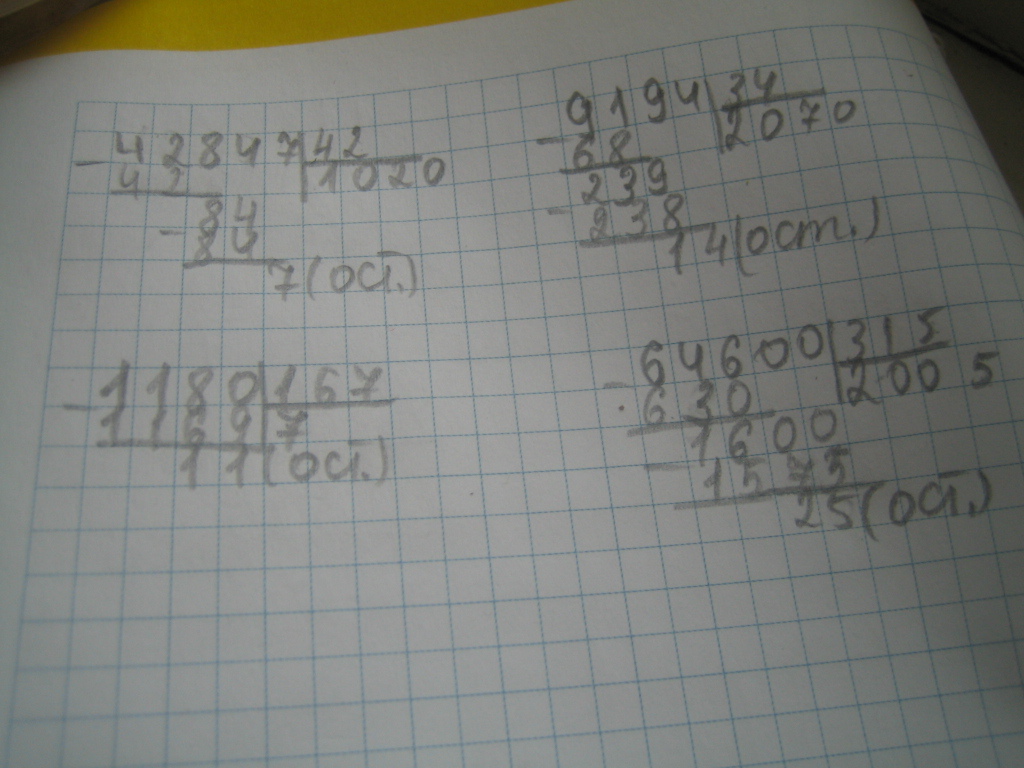 42847 42
42 1020
84
84
7(ост.)
9194 34
68 2070
239
238
14(ост.)
1180 167
1169 7
11(ост.)
64600 315
630 2005
1600
1575
25(ост.)